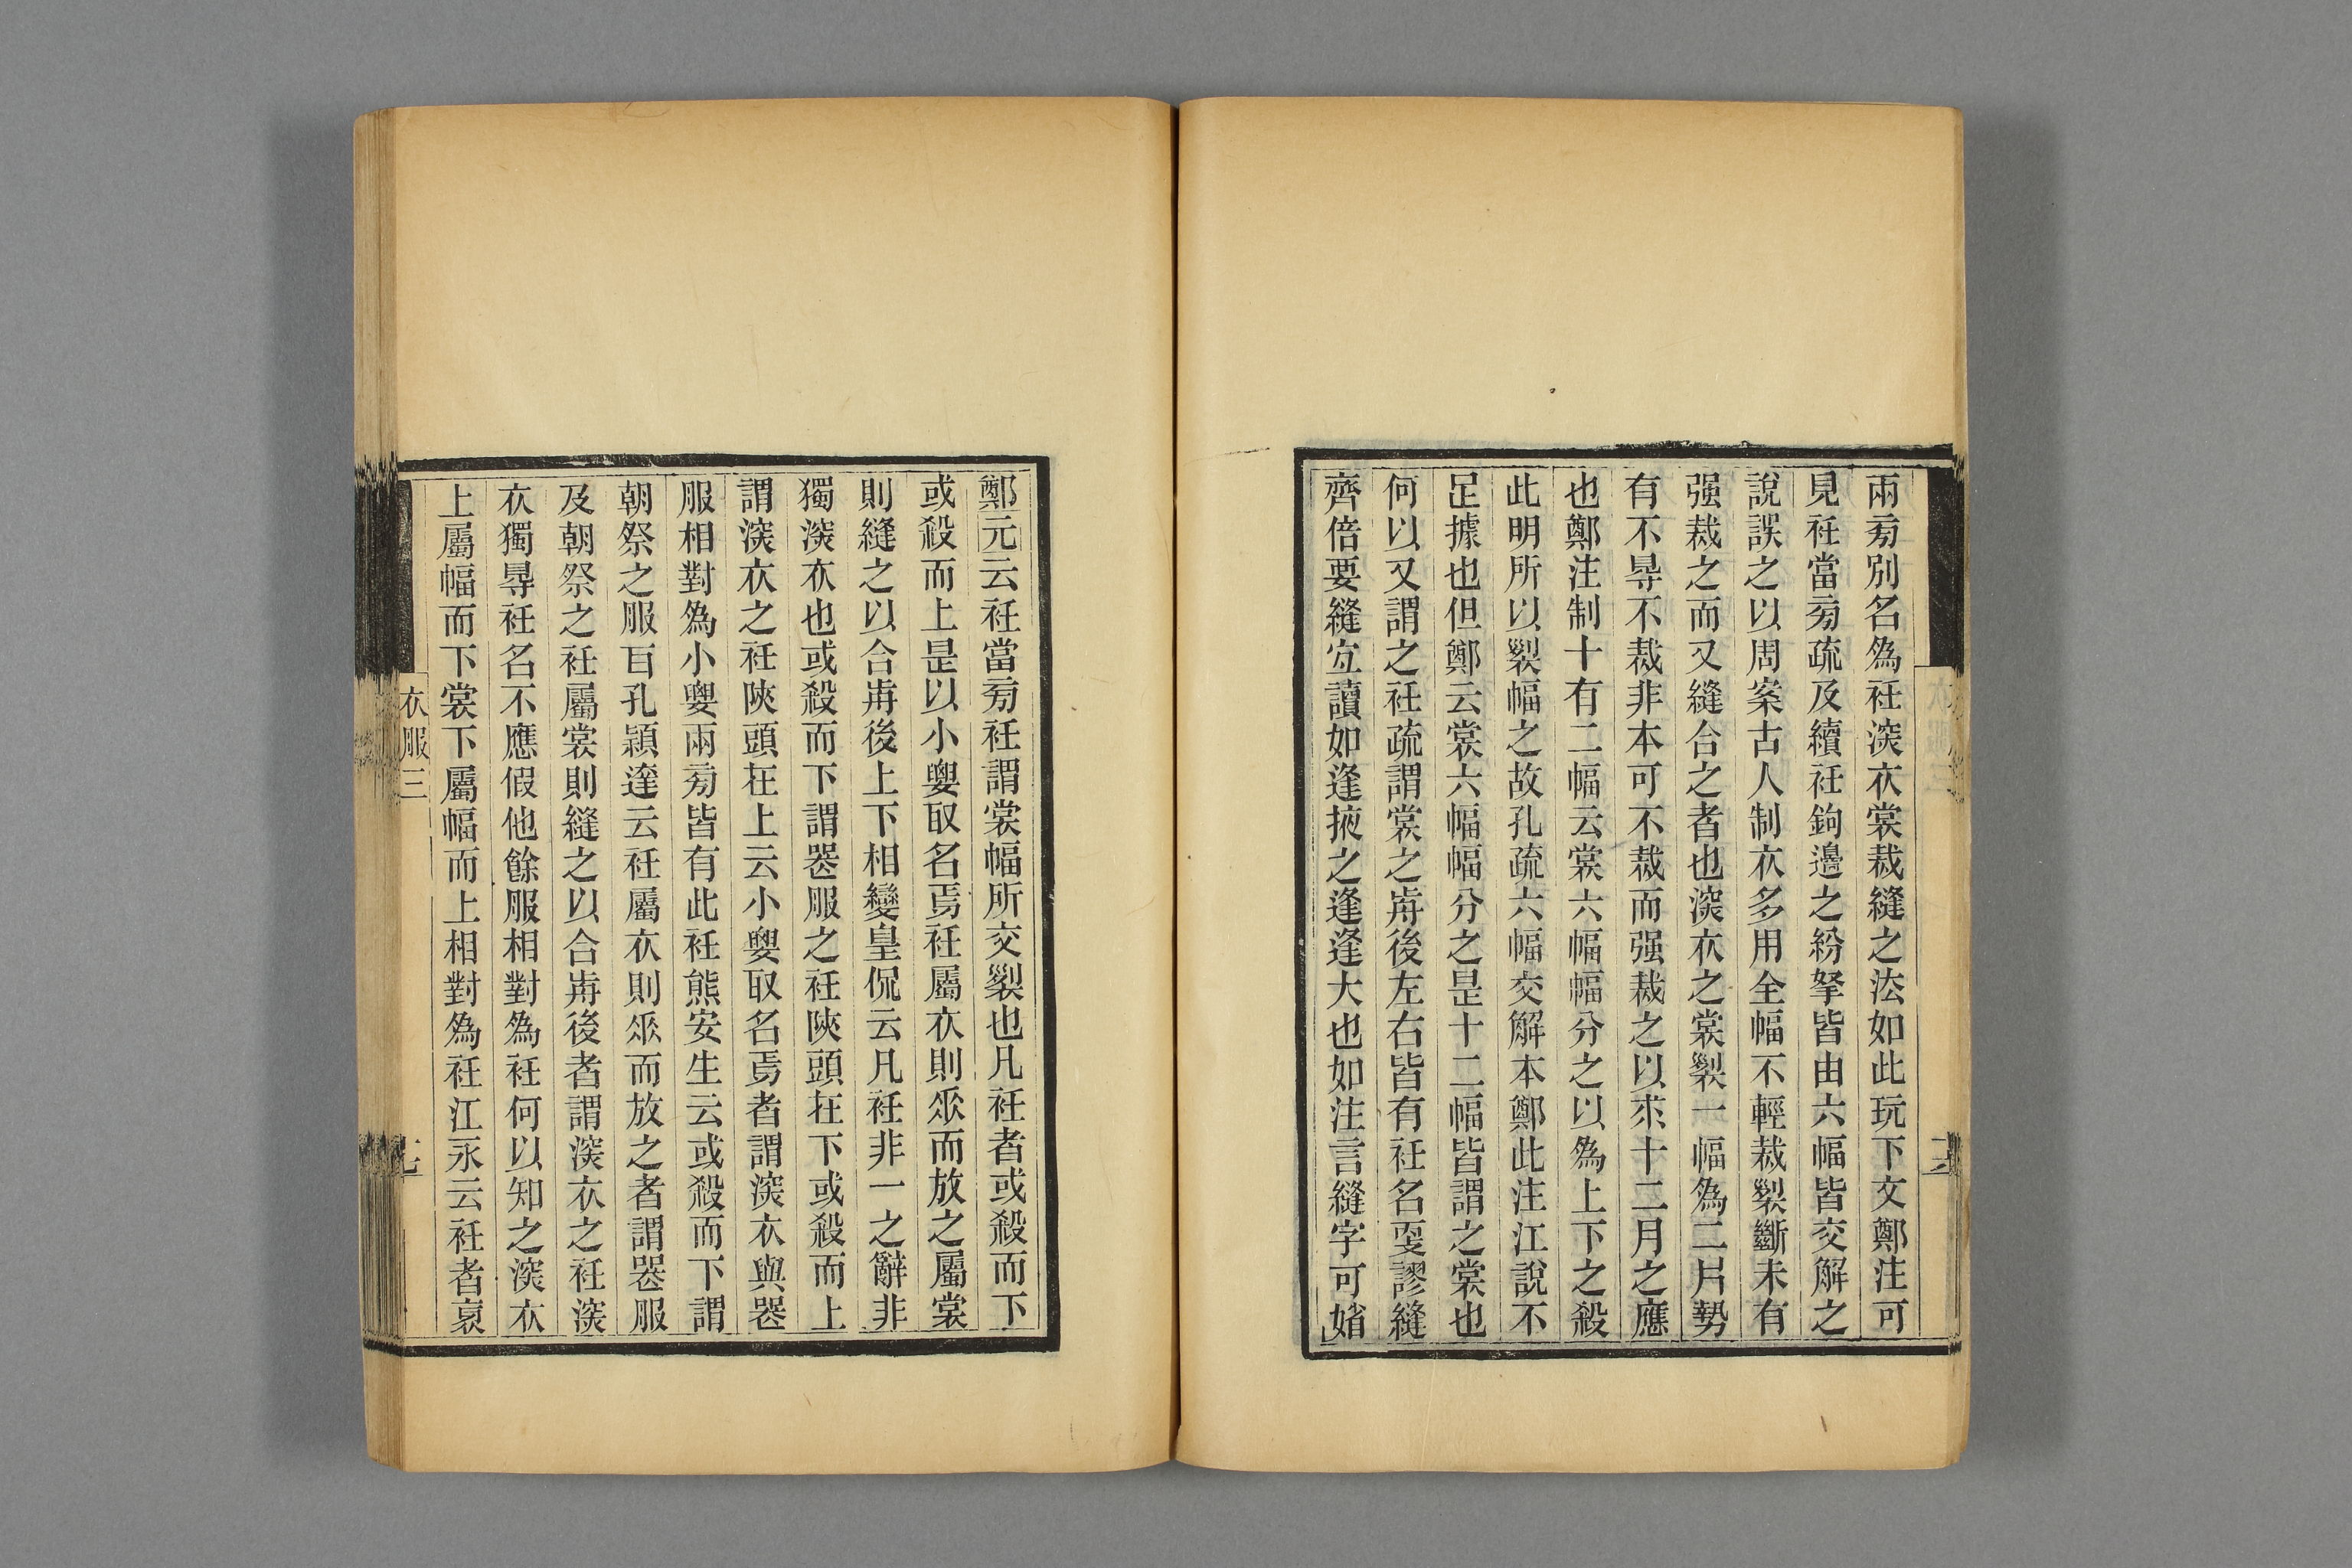 兩旁別名爲衽深衣裳裁縫之法如此玩下文鄭注可
見衽當旁疏及續衽鉤邊之紛拏皆由六幅皆交解之
說誤之以周案古人制衣多用全幅不輕裁裂斷未有
强裁之而又縫合之者也深衣之裳裂一幅爲二片勢
有不得不裁非本可不裁而强裁之以求十二月之應
也鄭注制十有二幅云裳六幅幅分之以爲上下之殺
此明所以裂幅之故孔疏六幅交解本鄭此注江說不
足據也但鄭云裳六幅幅分之是十二幅皆謂之裳也
何以又謂之衽疏謂裳之歬後左右皆有衽名更謬縫
齊倍要縫宜讀如逢掖之逢逢大也如注言縫字可媘
鄭元云衽當旁衽謂裳幅所交裂也凡衽者或殺而下
或殺而上是以小要取名焉衽屬衣則𠂢而放之屬裳
則縫之以合歬後上下相變皇侃云凡衽非一之辭非
獨深衣也或殺而下謂喪服之衽陜頭在下或殺而上
謂深衣之衽陜頭在上云小要取名焉者謂深衣與喪
服相對爲小要兩旁皆有此衽熊安生云或殺而下謂
朝祭之服百孔穎達云衽屬衣則𠂢而放之者謂喪服
及朝祭之衽屬裳則縫之以合歬後者謂深衣之衽深
衣獨得衽名不應假他餘服相對爲衽何以知之深衣
上屬幅而下裳下屬幅而上相對爲衽江永云衽者衺
衣服三
七